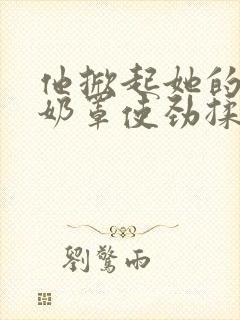 他掀起她的
奶罩使劲揉
劉驚雨